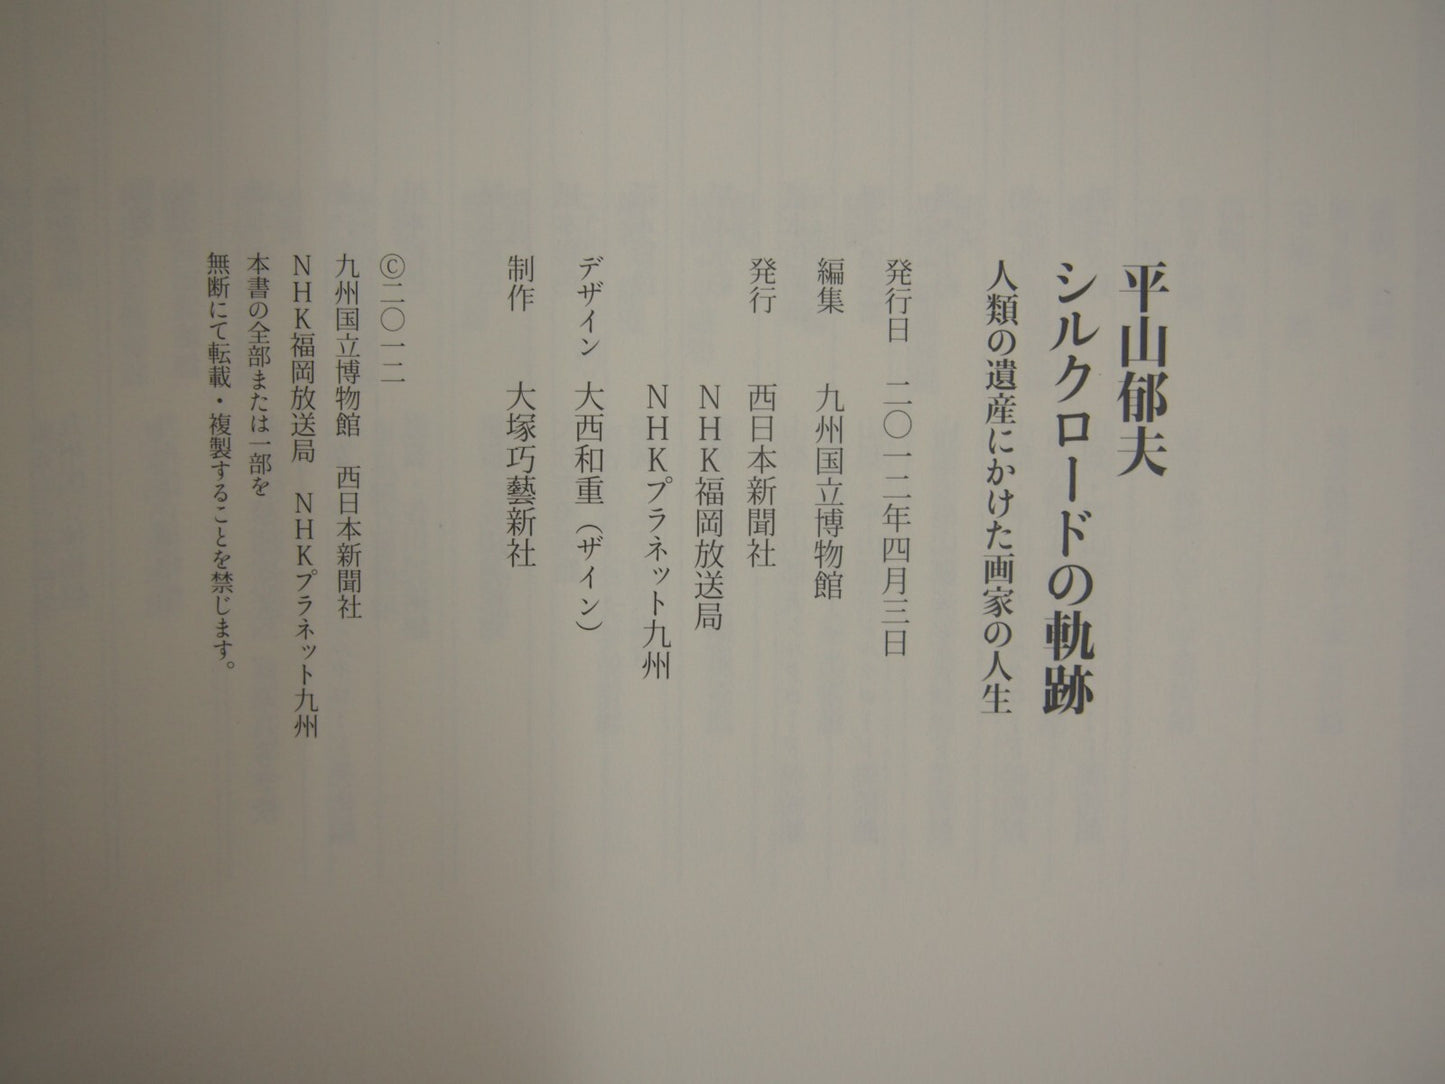 平山郁夫
シルクロードの軌跡
人類の遺産にかけた画家の人生
発行日　二〇一二年四月三日
編集　九州国立博物館
発行　西日本新聞社
NHK福岡放送局
NHKプラネット九州
デザイン　大西和重（ザイン）
制作　大塚巧藝新社
©二〇一二
九州国立博物館　西日本新聞社
NHK福岡放送局　NHKプラネット九州
本書の全部または一部を
無断にて転載・複製することを禁じます。